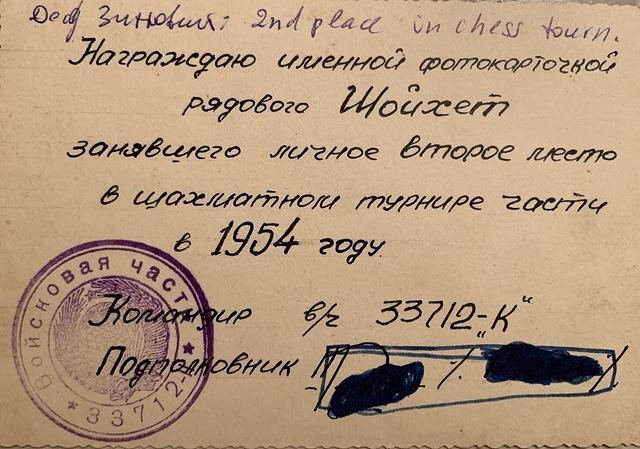 Дед Зиновий: 2nd place in chess tourn.
Награждаю именной фотокарточкой
рядового Шойхет
занявшего личное второе место
в шахматном турнире части
в 1954 году.
Командир в/ч 33712-„К“
Подполковник
Войсковая часть
* 33712- *